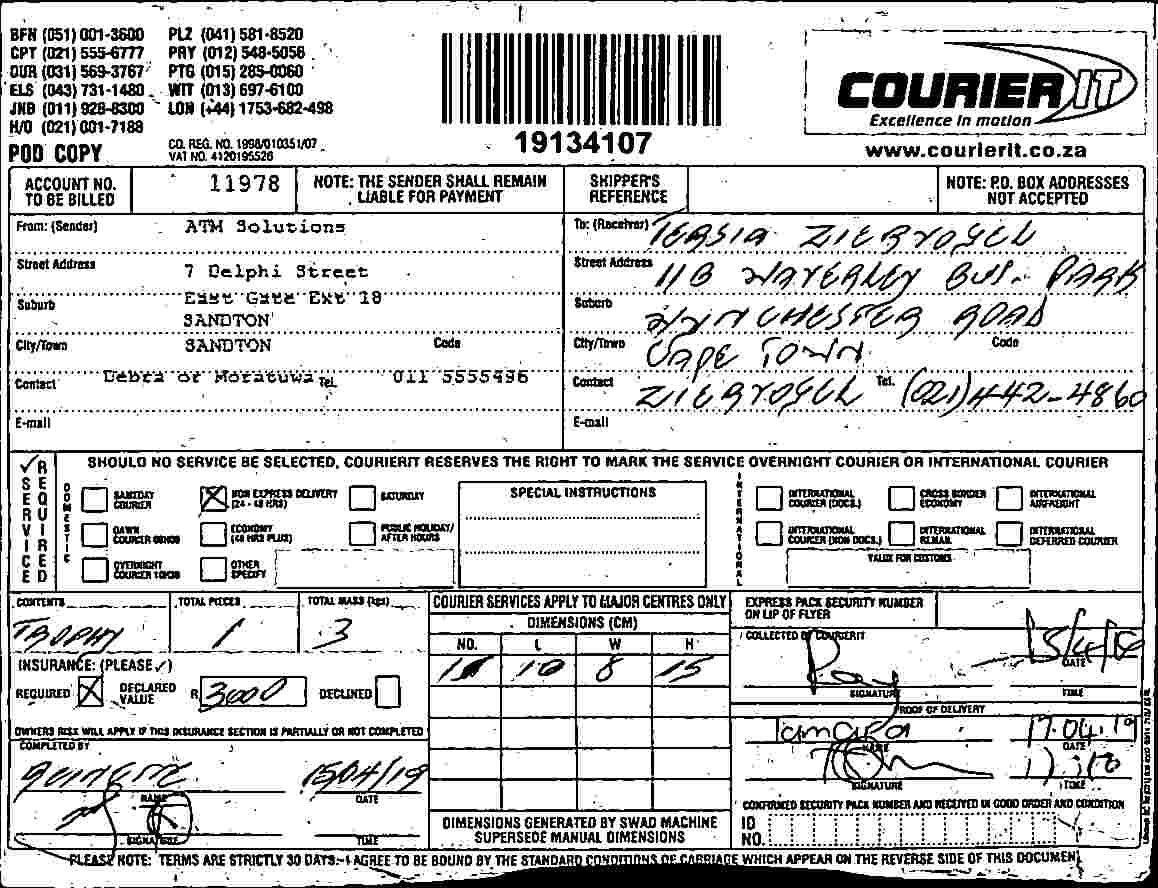 BFN (051) 001-3600 PLZ (041) 581-8520
CPT (021) 555-6777 PRY (012) 548-5056
DUR (031) 569-3767 PTG (015) 285-0060
ELS (043) 731-1480 WIT (013) 697-6100
JNB (011) 928-8300 LON (+44) 1753-682-498
H/O (021) 001-7188
POD COPY
CO. REG. NO. 1998/010351/07
VAT NO. 4120195526
19134107
COURIER IT
Excellence in motion
www.courierit.co.za
ACCOUNT NO. TO BE BILLED 11978
NOTE: THE SENDER SHALL REMAIN LIABLE FOR PAYMENT
SHIPPER'S REFERENCE
NOTE: P.O. BOX ADDRESSES NOT ACCEPTED
From: (Sender) ATM Solutions
Street Address 7 Delphi Street
Suburb East Gate Ext 18
SANDTON
City/Town SANDTON Code
Contact Debra or Moratuwa Tel. 011 5555496
E-mail
To: (Receiver) TERSIA ZIERVOGEL
Street Address 11B WAVERLEY BUS. PARK
Suburb WYNCHESTER ROAD
City/Town CAPE TOWN Code
Contact ZIERVOGEL Tel. (021) 442-4860
E-mail
SERVICE REQUIRED
SHOULD NO SERVICE BE SELECTED, COURIERIT RESERVES THE RIGHT TO MARK THE SERVICE OVERNIGHT COURIER OR INTERNATIONAL COURIER
DOMESTIC
SAMEDAY COURIER
NON EXPRESS DELIVERY (24 - 48 HRS)
SATURDAY
DAWN COURIER 08H00
ECONOMY (48 HRS PLUS)
PUBLIC HOLIDAY/ AFTER HOURS
OVERNIGHT COURIER 10H30
OTHER SPECIFY
SPECIAL INSTRUCTIONS
INTERNATIONAL
INTERNATIONAL COURIER (DOCS.)
CROSS BORDER ECONOMY
INTERNATIONAL AIRFREIGHT
INTERNATIONAL COURIER (NON DOCS.)
INTERNATIONAL REMAIL
INTERNATIONAL DEFERRED COURIER
VALUE FOR CUSTOMS
CONTENTS TROPHY
TOTAL PIECES 1
TOTAL MASS (kgs) 3
INSURANCE: (PLEASE ✓)
REQUIRED X DECLARED VALUE R 3000 DECLINED
OWNERS RISK WILL APPLY IF THIS INSURANCE SECTION IS PARTIALLY OR NOT COMPLETED
COMPLETED BY
NAME
15/04/19
DATE
SIGNATURE
TIME
COURIER SERVICES APPLY TO MAJOR CENTRES ONLY
DIMENSIONS (CM)
NO. L W H
10 8 15
DIMENSIONS GENERATED BY SWAD MACHINE SUPERSEDE MANUAL DIMENSIONS
EXPRESS PACK SECURITY NUMBER ON LIP OF FLYER
COLLECTED BY COURIERIT
Ray
SIGNATURE
DATE
TIME
PROOF OF DELIVERY
Tamara
NAME
17.04.19
DATE
SIGNATURE
TIME
CONFIRMED SECURITY PACK NUMBER AND RECEIVED IN GOOD ORDER AND CONDITION
ID NO.
PLEASE NOTE: TERMS ARE STRICTLY 30 DAYS - I AGREE TO BE BOUND BY THE STANDARD CONDITIONS OF CARRIAGE WHICH APPEAR ON THE REVERSE SIDE OF THIS DOCUMENT